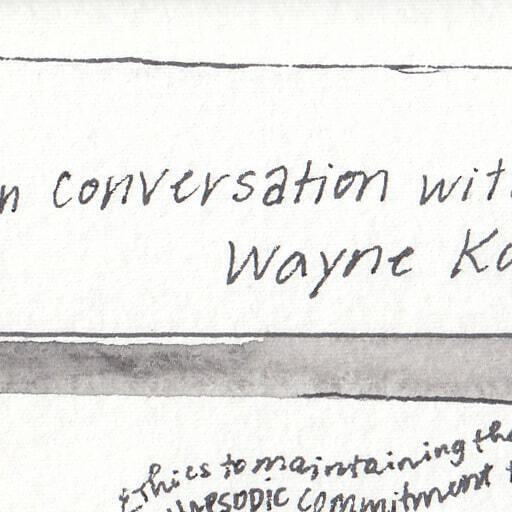 n conversation wit
Wayne Ka
Ethics to maintaining tha
commitment